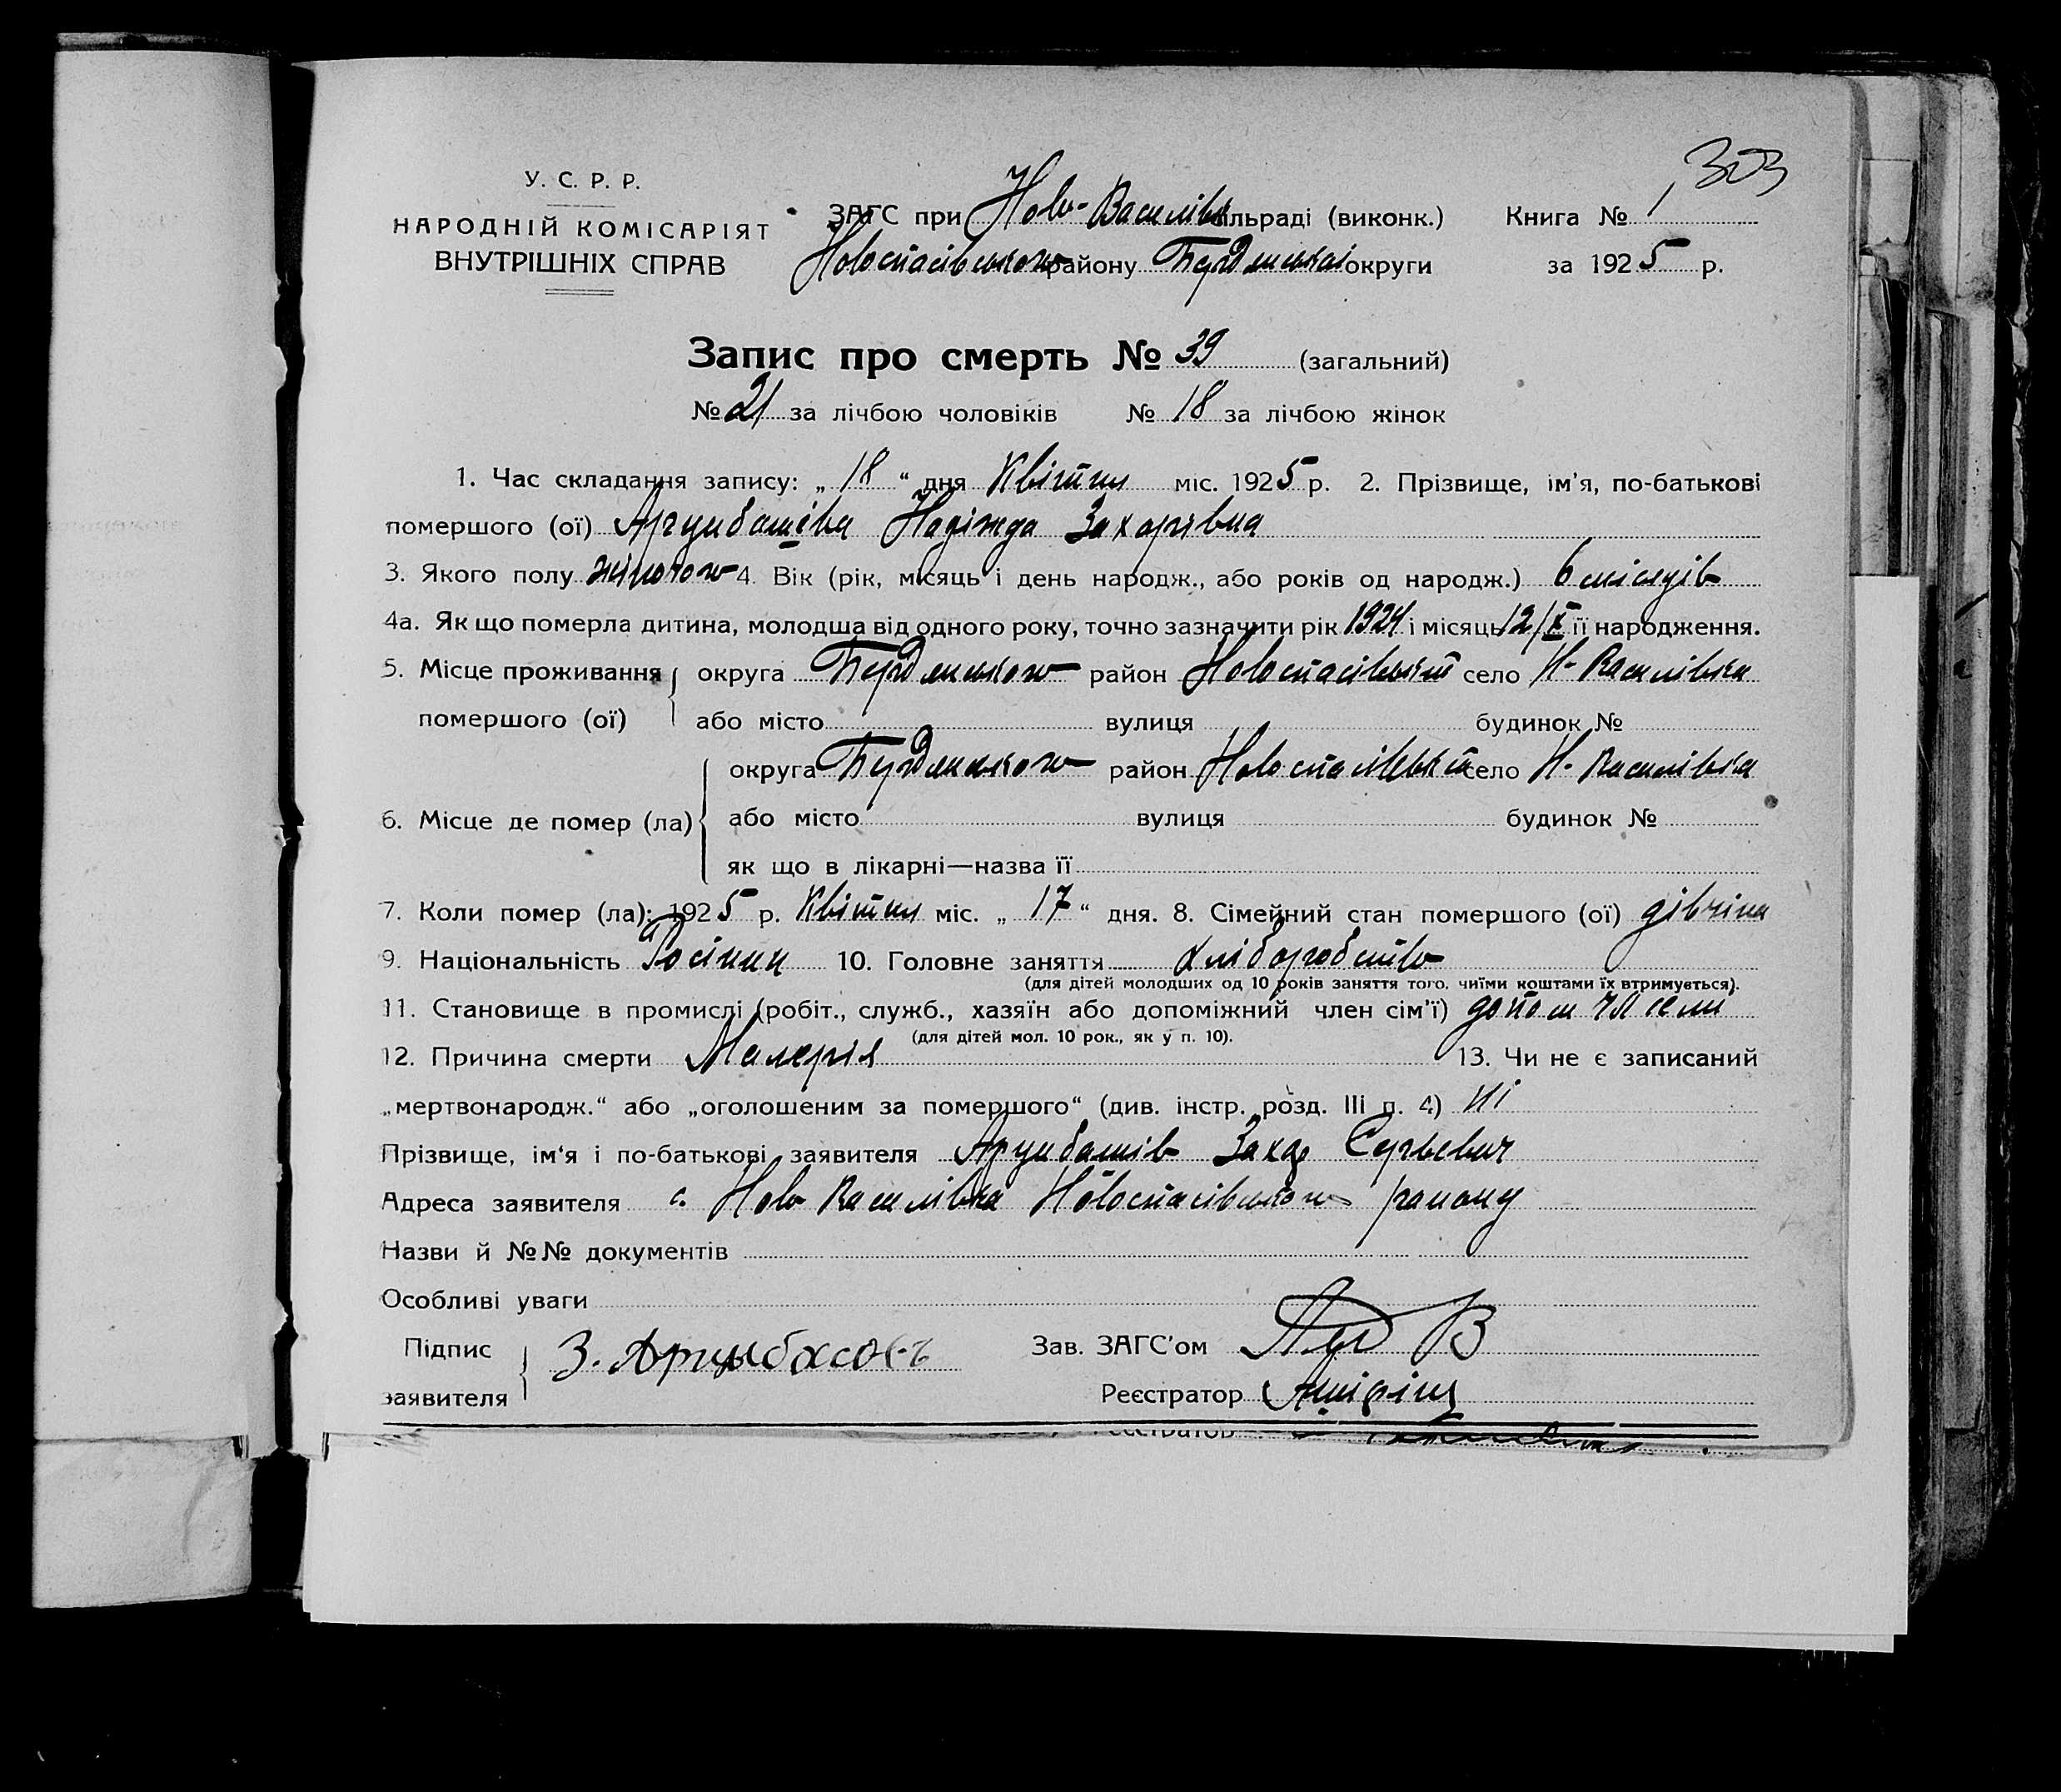 303
У. С. Р. Р.
НАРОДНІЙ КОМІСАРІЯТ
ВНУТРІШНІХ СПРАВ
ЗАГС при Ново-Василівк сільраді (виконк.) Книга № 1
Новоспасівського району Бердянської округи за 1925 р.
Запис про смерть № 39 (загальний)
№ 21 за лічбою чоловіків № 18 за лічбою жінок
1. Час складання запису: „ 18 “ дня Квітня міс. 1925 р. 2. Прізвище, ім'я, по-батькові
помершого (ої) Арцибашёва Надіжда Захарівна
3. Якого полу жіночого 4. Вік (рік, місяць і день народж., або років од народж.) 6 місяців
4а. Як що померла дитина, молодша від одного року, точно зазначити рік 1924 і місяць 12/X її народження.
5. Місце проживання округа Бердянського район Новоспасівський село Н-Василівка
помершого (ої) або місто вулиця будинок №
округа Бердянського район Новоспасівський село Н-Василівка
6. Місце де помер (ла) або місто вулиця будинок №
як що в лікарні—назва її
7. Коли помер (ла): 1925 р. Квітня міс. „ 17 “ дня. 8. Сімейний стан помершого (ої) дівчіна
9. Національність Росіяни 10. Головне заняття хліборобство
(для дітей молодших од 10 років заняття того, чиїми коштами їх втримується).
11. Становище в промислі (робіт., служб., хазяїн або допоміжний член сім'ї) допом чл семи
(для дітей мол. 10 рок., як у п. 10).
12. Причина смерти Малерія 13. Чи не є записаний
„мертвонародж.“ або „оголошеним за помершого“ (див. інстр. розд. III п. 4) ні
Прізвище, ім'я і по-батькові заявителя Арцибашів Захар Сергьевич
Адреса заявителя с. Ново Василівка Новоспасівського району
Назви й №№ документів
Особливі уваги
Підпис З. Арцыбасовъ Зав. ЗАГС'ом
заявителя Реєстратор
Реєстратор